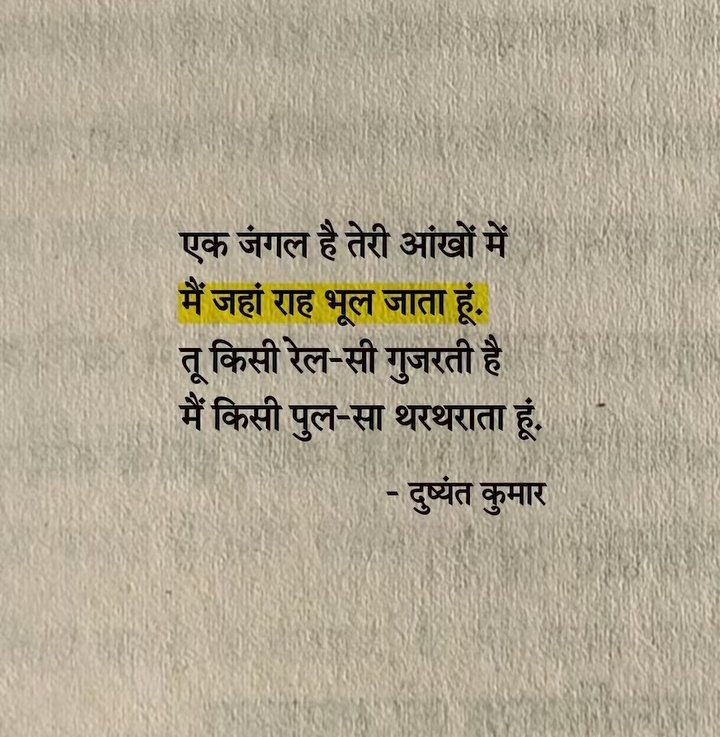 एक जंगल है तेरी आंखों में
मैं जहां राह भूल जाता हूं.
तू किसी रेल-सी गुजरती है
मैं किसी पुल-सा थरथराता हूं.
- दुष्यंत कुमार